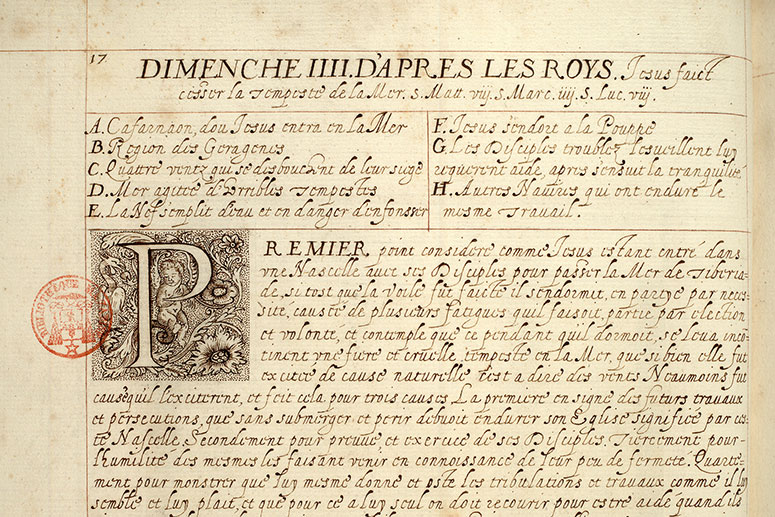 17
DIMENCHE IIII. D'APRES LES ROYS. Jesus faict
cesser la Tempeste de la Mer. S. Matt. viij. S. Marc. iiij. S. Luc. viij.
A. Cafarnaon, dou Jesus entra en la Mer
B. Region des Geragenes
C. Quattre ventz qui se desbouchent de leur siege
D. Mer agitée d'orribles Tempestes
E. La Nef s'emplit d'eau et en danger d'enfonsser
F. Jesus s'endort a la Pouppe
G. Les Disciples troublez lesveillent luy
requierent aide, apres sensuit la tranquilité
H. Autres Navires qui ont enduré le
mesme Travail.
PREMIER point considere comme Jesus estant entré dans
vne Nascelle avec ses Disciples pour passer la Mer de Tiberia-
de, si tost que la voile fut faicte il sendormit, en partye par neces
sité, causée de plusieurs fatigues quil faisoit, partie par election
et volonté, et contemple que ce pendant quil dormoit, se leua incõ
tinent vne fiere et cruelle tempeste en la Mer, que si bien elle fut
excitee de cause naturelle c'est a dire des vents Neaumoins fut
causé quil l'exciterent, et feit cela pour trois causes La premiere en signe des futurs travaux
et persecutions, que sans submerger et perir debuoit endurer son Eglise significé par ces
te Nascelle, Secondement pour preuue et exercice de ses Disciples, Tiercement pour-
l'humilité des mesmes les faisant venir en connoissance de leur peu de fermeté. Quarte-
ment pour monstrer que luy mesme donne et oste les tribulations et travaux comme il luy
semble et luy plait, et que pour ce a luy seul on doit recourir pour estre aidé quand ils